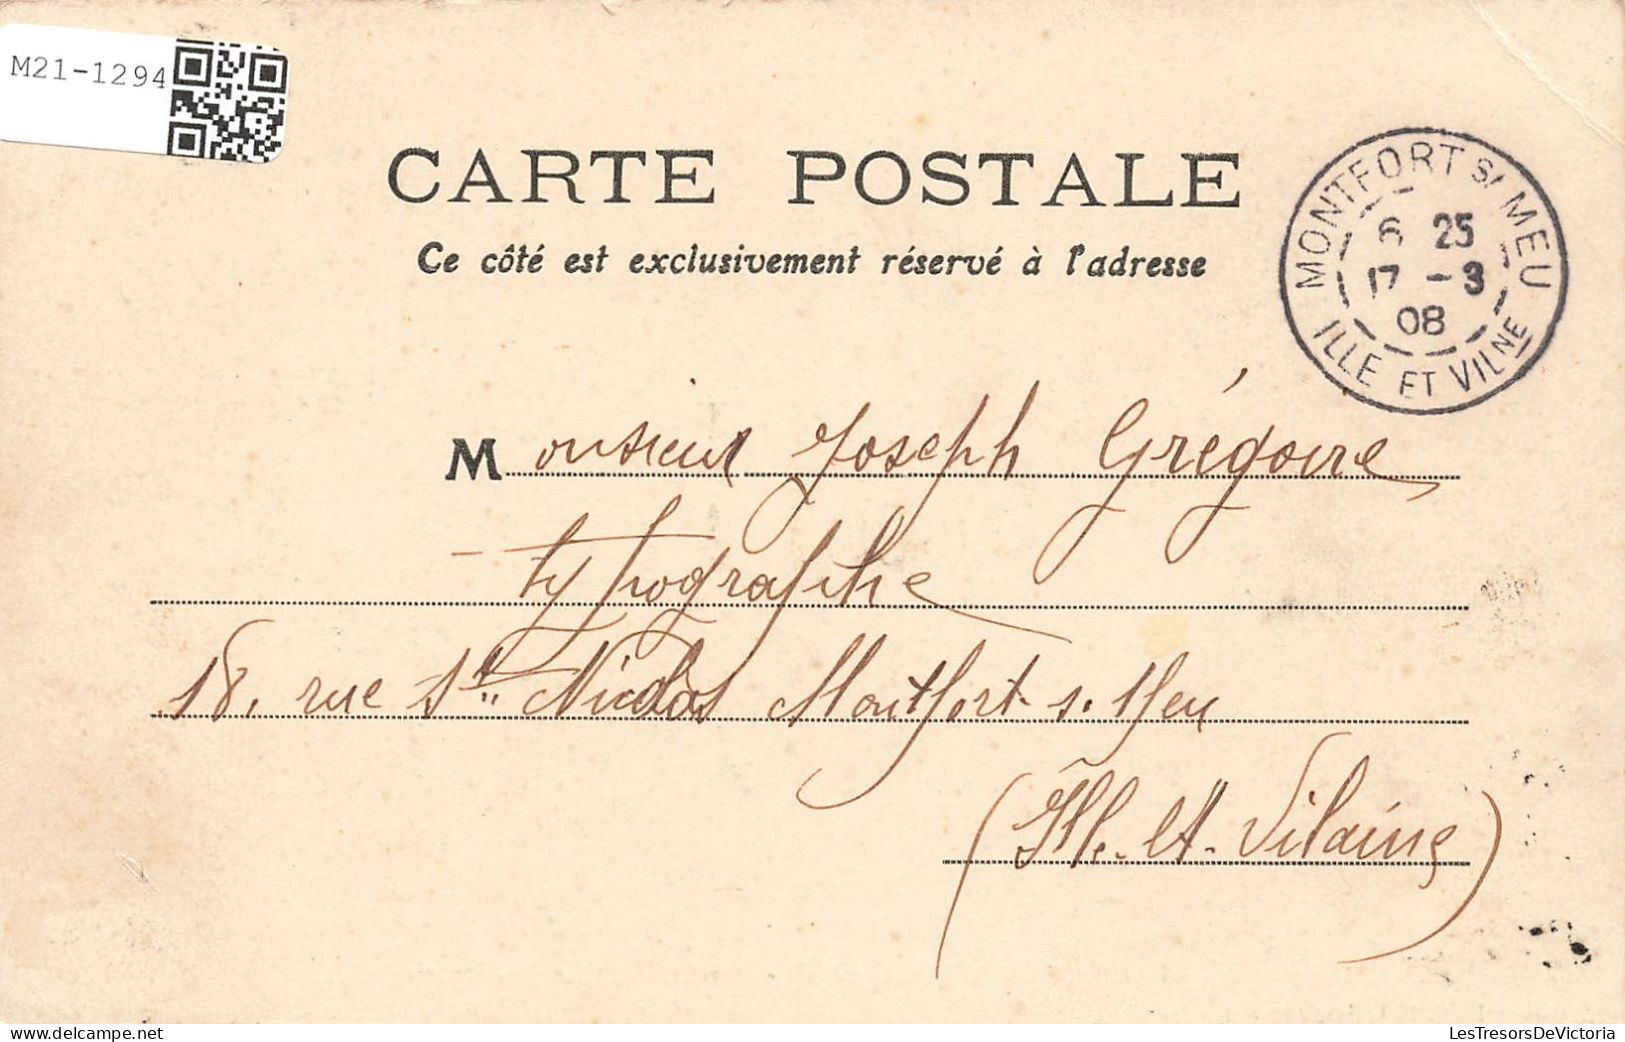 M21-1294
CARTE POSTALE
Ce côté est exclusivement réservé à l'adresse
MONTFORT S/ MEU
6 25
17 - 3
08
ILLE ET VILNE
Monsieur Joseph Grégoire
typographe
18, rue St Nicolas Montfort-s. Meu
(Ille-et-Vilaine)
LesTresorsDeVictoria